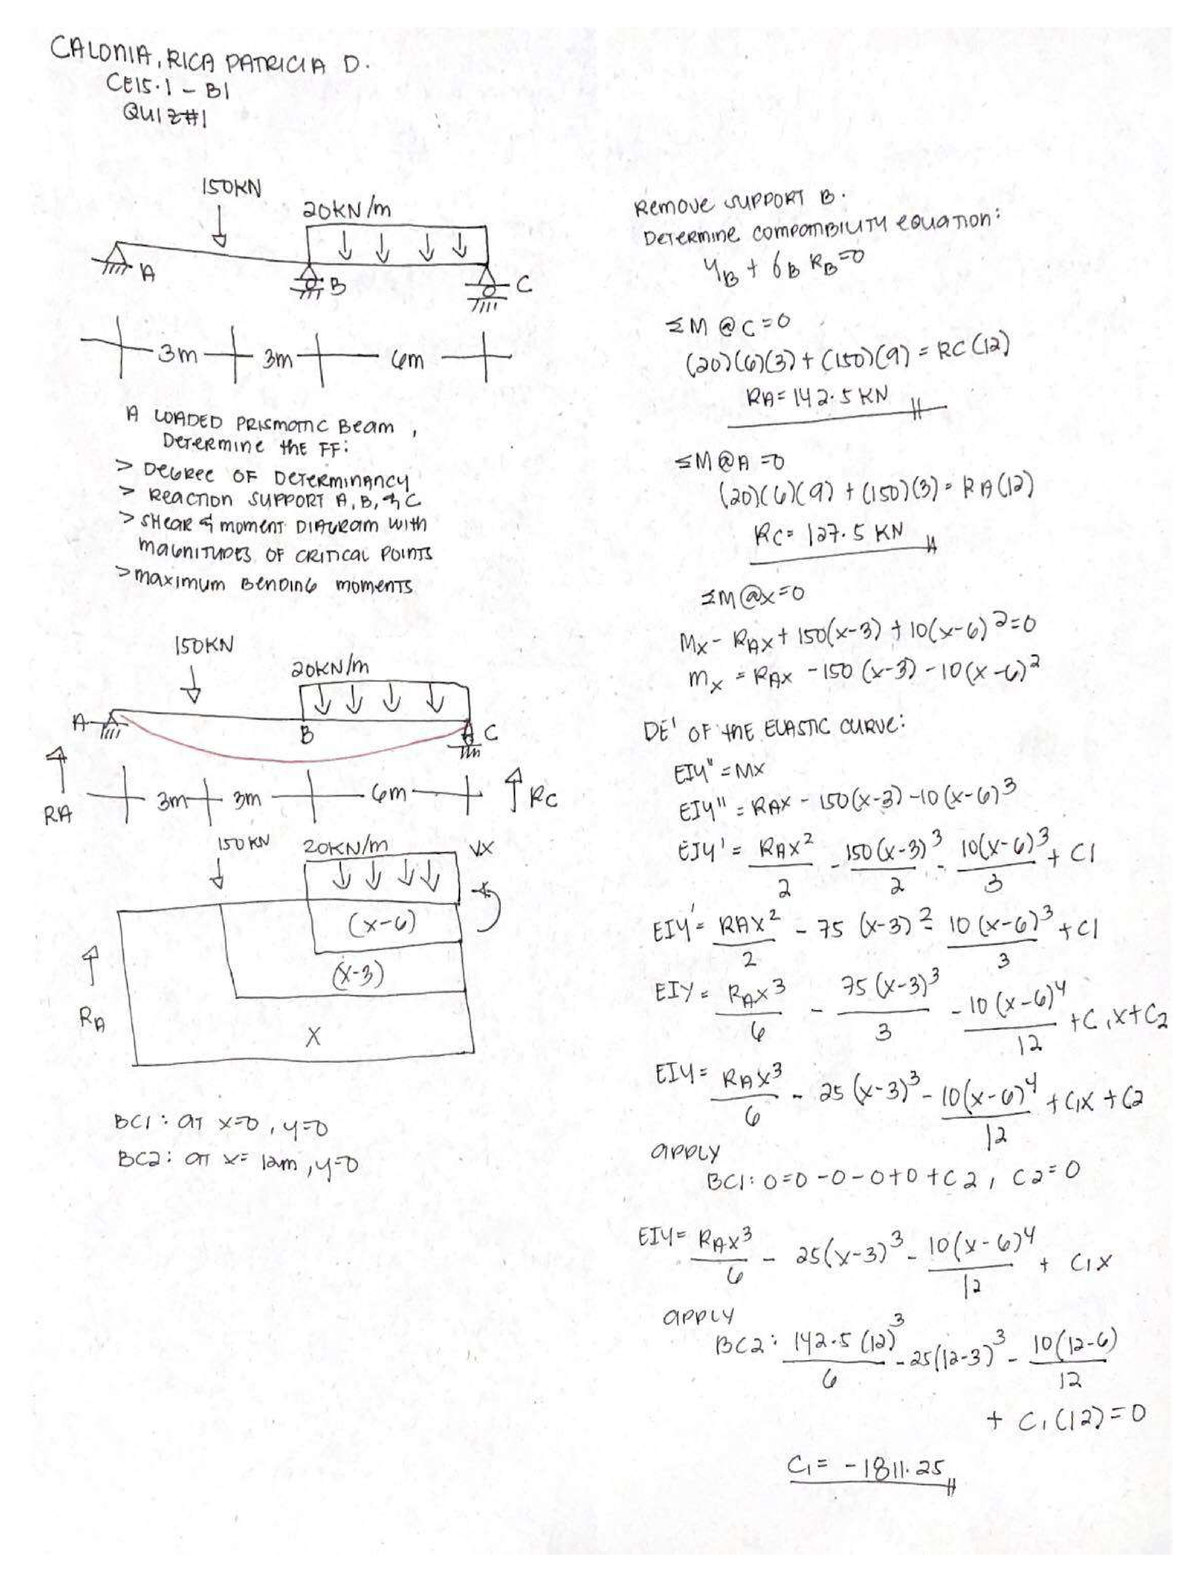 CALONIA, RICA PATRICIA D.
CE15.1 - B1
QUIZ#1
150KN
20KN/m
A
B
C
3m
3m
6m
A LOADED PRISMATIC Beam,
DETERMINE the FF:
> DEGREE OF DETERMINANCY
> REACTION SUPPORT A, B, & C
> SHEAR & moment DIAGRAM with
MAGNITUDES OF CRITICAL POINTS
> maximum BENDING moments
150KN
20KN/m
A
B
C
RA
3m
3m
6m
RC
150KN
20KN/m
VX
(x-6)
(x-3)
X
RA
BC1: at x=0, y=0
BC2: at x= 12m, y=0
Remove SUPPORT B.
DETERMINE COMPATIBILITY equation:
yB + δB RB=0
ΣM @C=0
(20)(6)(3) + (150)(9) = RC (12)
RA= 142.5 KN
ΣM@A =0
(20)(6)(9) + (150)(3) = RA(12)
RC= 127.5 KN
ΣM@x=0
Mx - RAx + 150(x-3) + 10(x-6)²=0
mx = RAx - 150 (x-3) - 10(x-6)²
DE' OF THE ELASTIC CURVE:
EIy" = Mx
EIy" = RAx - 150(x-3) - 10(x-6)³
EIy' = RAx²/2 - 150(x-3)³/2 - 10(x-6)³/3 + C1
EIy' = RAx²/2 - 75 (x-3)² - 10(x-6)³/3 + C1
EIY = RAx³/6 - 75(x-3)³/3 - 10(x-6)⁴/12 + C1x + C2
EIY = RAx³/6 - 25(x-3)³ - 10(x-6)⁴/12 + C1x + C2
APPLY
BC1: 0=0-0-0+0+C2, C2=0
EIY = RAx³/6 - 25(x-3)³ - 10(x-6)⁴/12 + C1x
APPLY
BC2: 142.5 (12)³/6 - 25(12-3)³ - 10(12-6)/12
+ C1(12)=0
C1= -1811.25